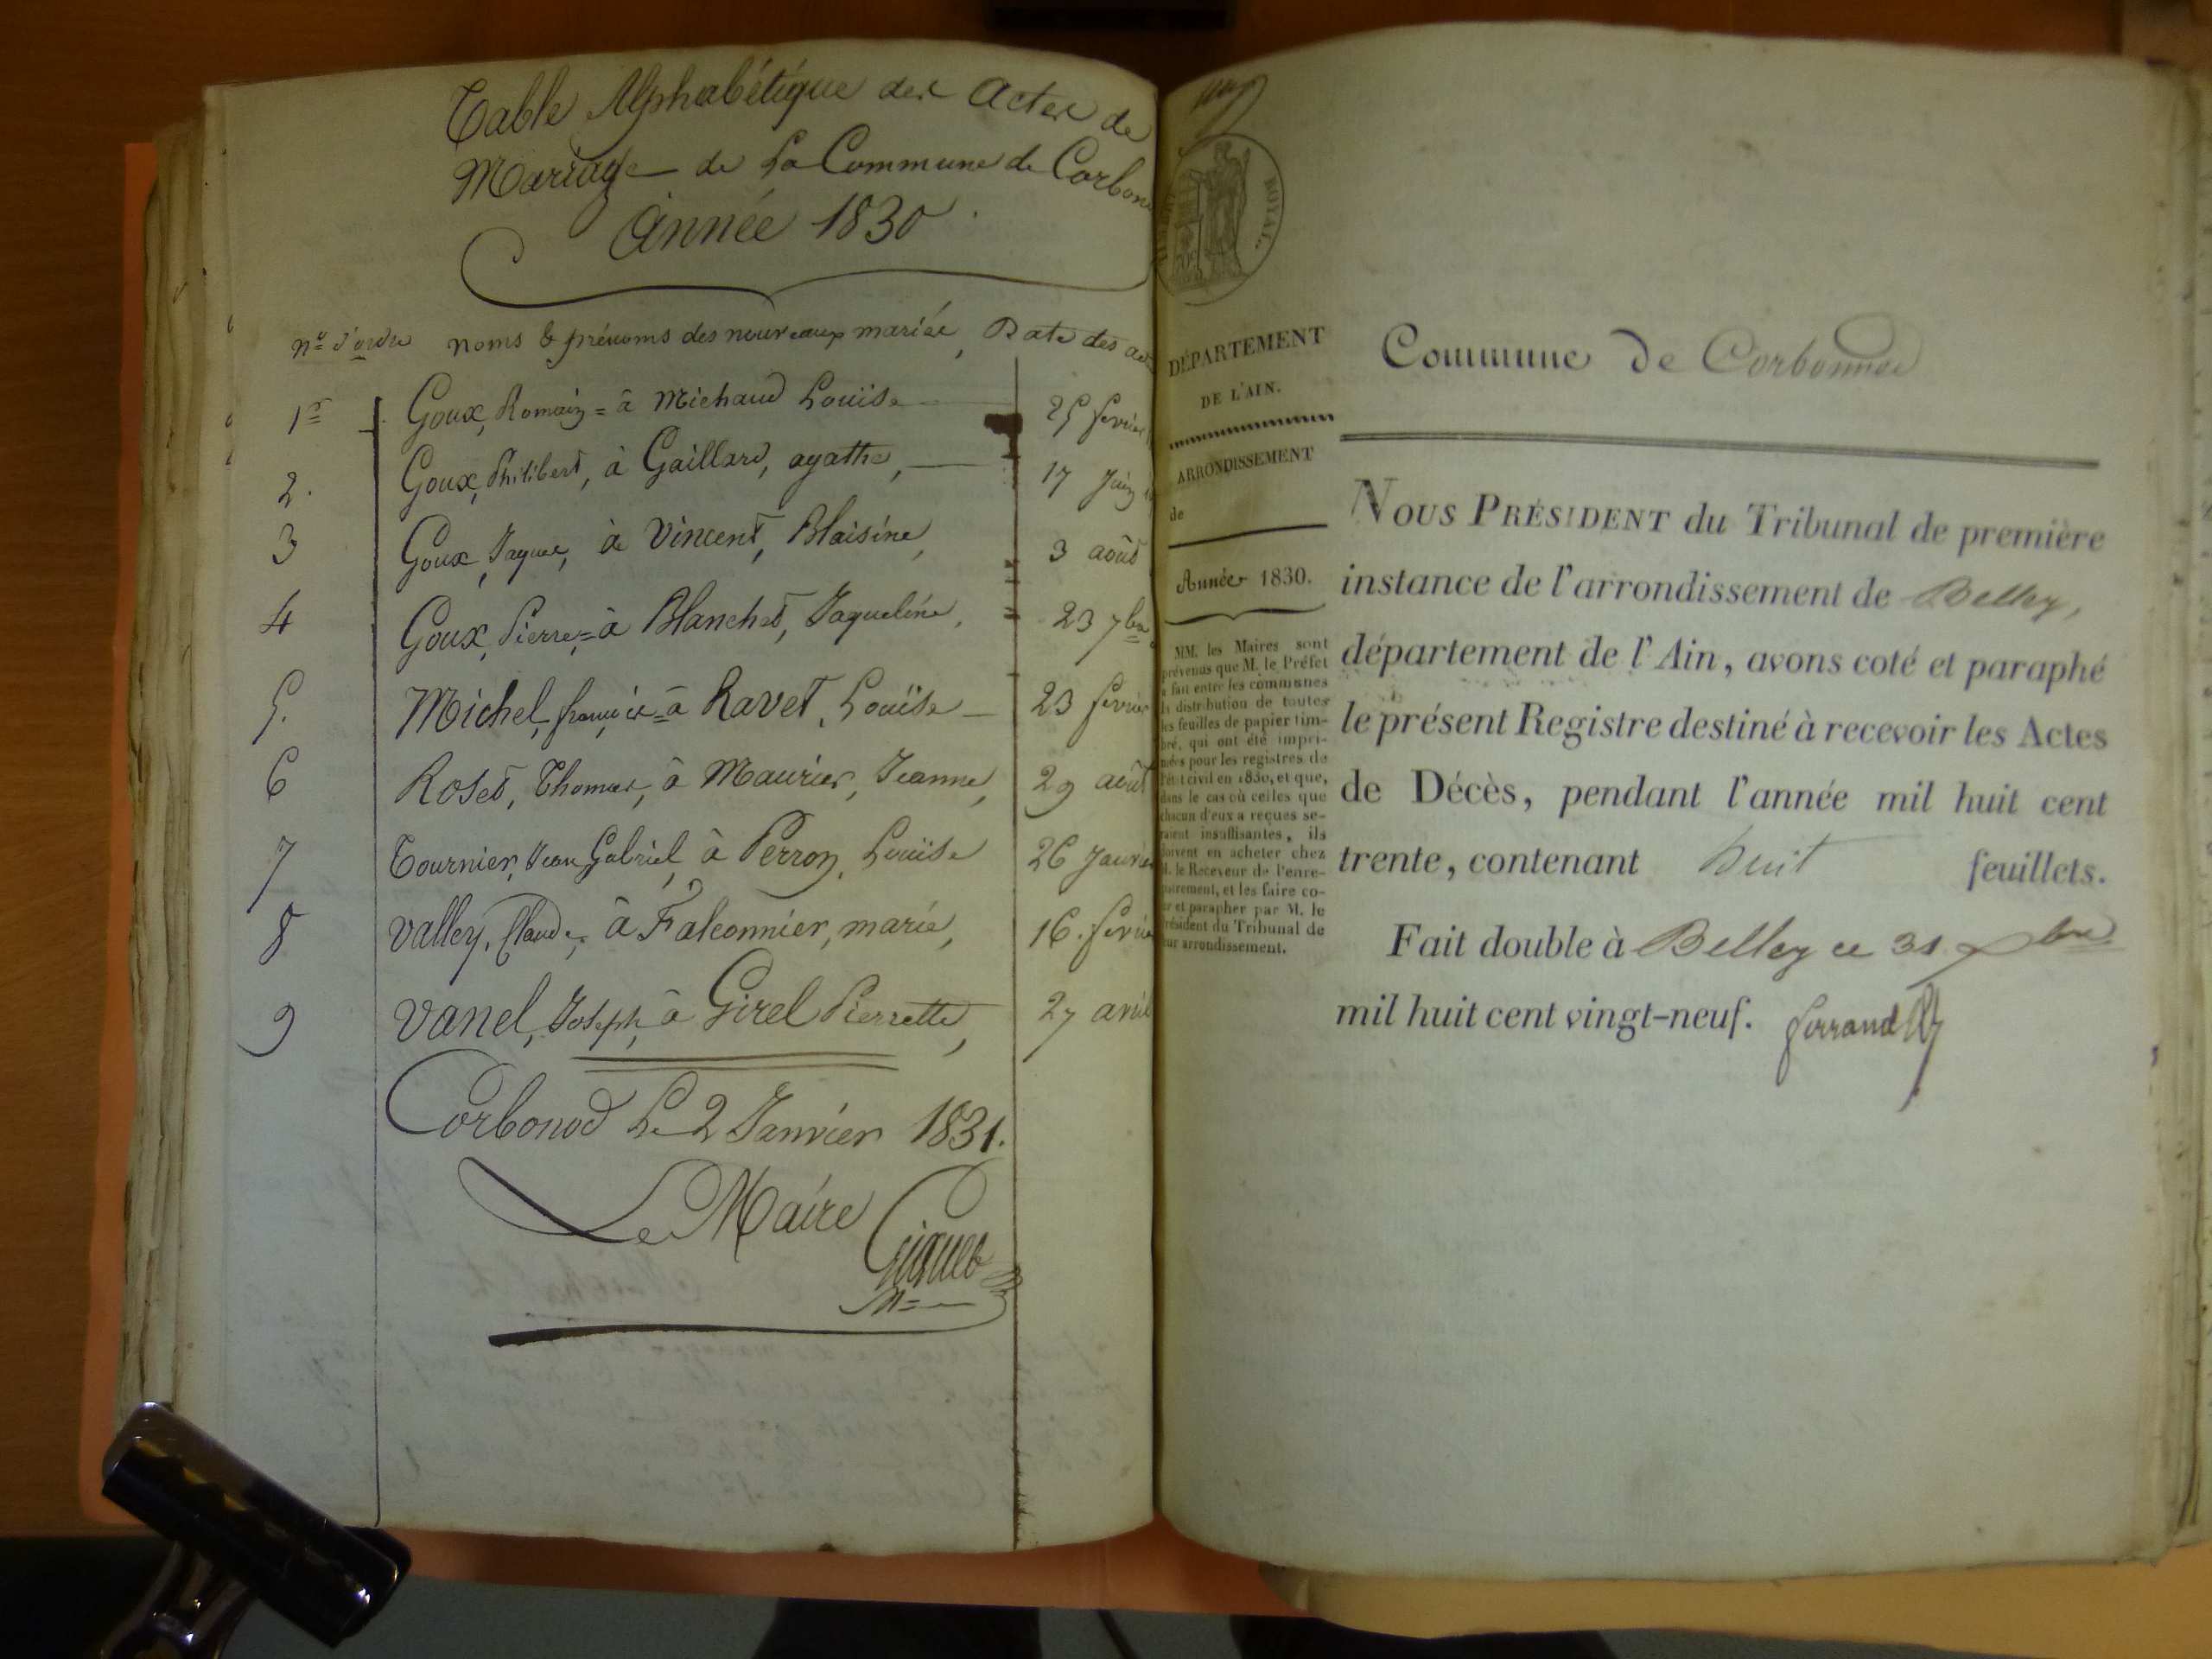 Table Alphabétique des Actes de
Mariage de La Commune de Corbon
Année 1830
n° d'ordre noms & prénoms des nouveaux mariés, Date des ac
1er Goux, Romain = à Michaud Louïse 25 fevrier
2. Goux, Philibert, à Gaillard, agathe, 17 Juin
3 Goux, Jaques, à Vincent, Blaisine, 3 août
4 Goux, Pierre, = à Blanchet, Jaqueline, 23 7bre
5. Michel, françois = à Ravet, Louïse 23 fevrier
6 Roset, Thomas, à Maurier, Jeanne, 29 août
7 Tournier, Jean Gabriel, à Perron, Louïse 26 Janvier
8 Valley, Claude, à Falconnier, marie, 16. fevrie
9 Vanel, Joseph, à Girel Pierrette, 27 avril
Corbonod Le 2 Janvier 1831.
Le Maire
ROYAL.
DÉPARTEMENT
DE L'AIN.
ARRONDISSEMENT
de
Année 1830.
MM. les Maires sont
prévenus que M. le Préfet
a fait entre les communes
la distribution de toutes
les feuilles de papier tim-
bré, qui ont été impri-
mées pour les registres de
l'état civil en 1830, et que,
dans le cas où celles que
chacun d'eux a reçues se-
raient insuffisantes, ils
doivent en acheter chez
M. le Receveur de l'enre-
gistrement, et les faire co-
ter et parapher par M. le
Président du Tribunal de
leur arrondissement.
Commune de Corbonnod
NOUS PRÉSIDENT du Tribunal de première
instance de l'arrondissement de Belley,
département de l'Ain, avons coté et paraphé
le présent Registre destiné à recevoir les Actes
de Décès, pendant l'année mil huit cent
trente, contenant huit feuillets.
Fait double à Belley ce 31 xbre
mil huit cent vingt-neuf. ferrand